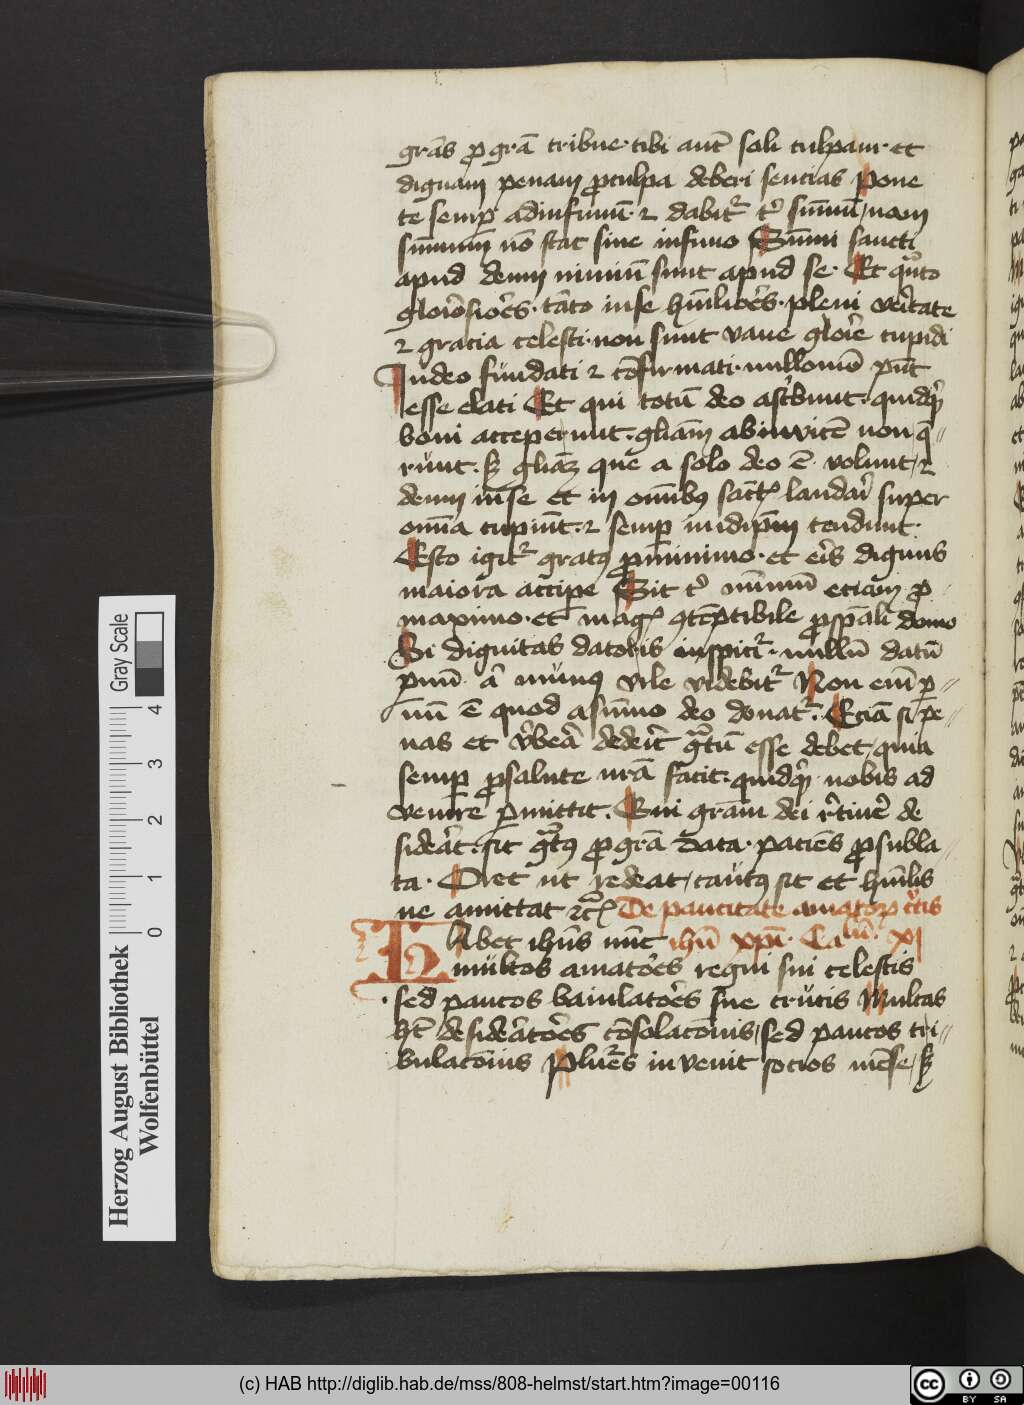 grās ꝓ grā tribue· tibi aūt soli culpam· et
dignam penam ꝓculpa deberi sencias Pone
te semꝑ adinfimū· ⁊ dabitᷣ tͥ summū/nam
summum nō stat sine infimo Summi sancti
apud deum minimi sunt apud se· Et quāto
gloriosiores· tāto inse humiliores· pleni veritate
⁊ gracia celesti· non sunt vane glorie cupidi
Indeo fundati ⁊ cōfirmati· nullomō p̄nt
esse elati Et qui totū deo ascribunt· quidq̄
boni acceperunt· gliam abinvicē non q̄
runt· sꝫ gliaꝫ que a solo deo ē· volunt/⁊
deum inse et in omnibꝯ sanctis laudari super
omia cupiūt· ⁊ semꝑ inidip̄m tendunt·
Esto igitᷣ gratꝯ ꝓminimo· et eris dignus
maiora accipe Sit tͥ minimū eciam ꝓ
maximo· et magis ꝯtēptibile ꝓspāli dono
Si dignitas datoris inspicitᷣ· nullū datū
paruū· aut munꝯ vile videbitᷣ Non enī p
uū ē quod asummo deo donatᷣ· Eciā si pe
nas et v̓bera dederit gratū esse debet/quia
semꝑ ꝓsalute nrā facit· quidq̄ nobis ad
venire ꝑmittit· Qui grām dei retinere de
siderat· sit gratꝯ ꝓgrā data· paciens ꝓsubla
ta· Oret ut redeat/cautꝯ sit et humilis
ne amittat ⁊c̄ De paucitate amatoꝝ crucis
Habet ihūs nūc ihū xp̄i· Caᵐ· xi
multos amatores regni sui celestis
· sed paucos baiulatores sue crucis Multos
hꝫ desideratores cōsolacionis/sed paucos tri
bulacionis Plures invenit socios mēse/sꝫ
Herzog August Bibliothek
Wolfenbüttel
Gray Scale
0 1 2 3 4
(c) HAB http://diglib.hab.de/mss/808-helmst/start.htm?image=00116
cc BY SA